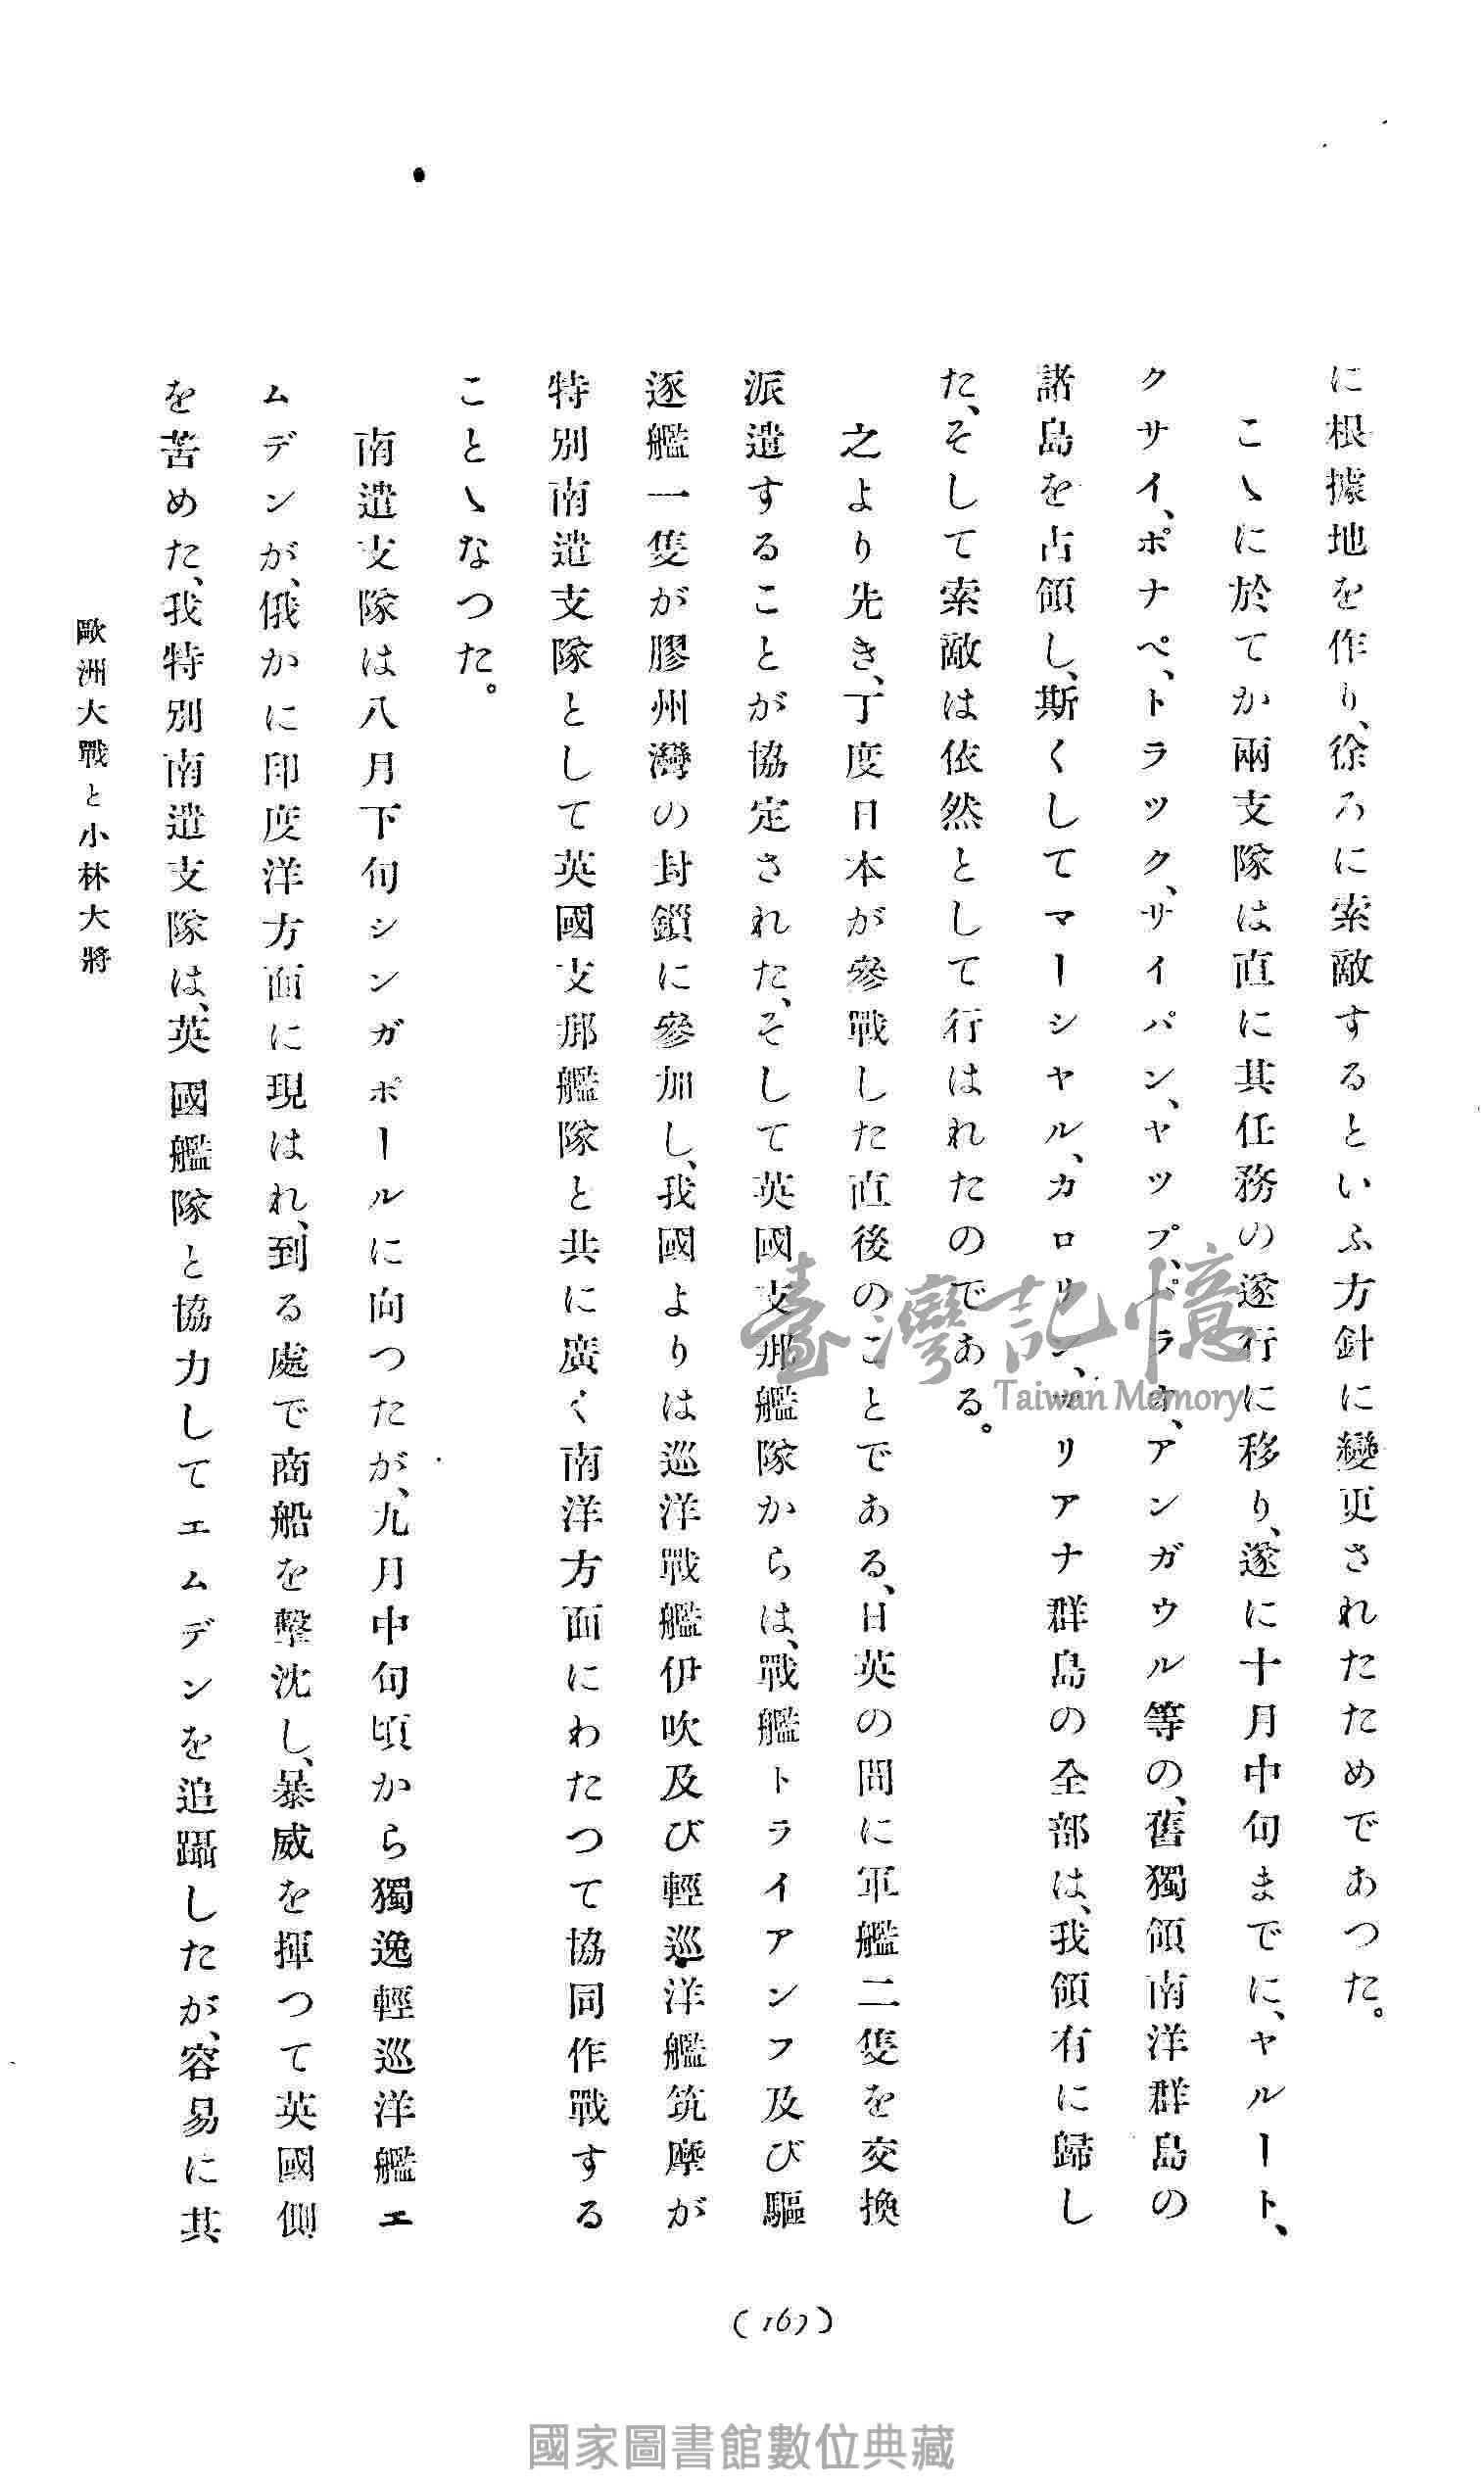 に根據地を作り、徐ろに索敵するといふ方針に變更されたためであつた。
こゝに於てか兩支隊は直に其任務の遂行に移り、遂に十月中旬までに、ヤルート、
クサイ、ポナペ、トラツク、サイパン、ヤツプ、パラオ、アンガウル等の、舊獨領南洋群島の
諸島を占領し、斯くしてマーシヤル、カロリン、マリアナ群島の全部は、我領有に歸し
た、そして索敵は依然として行はれたのである。
之より先き、丁度日本が參戰した直後のことである、日英の間に軍艦二隻を交換
派遣することが協定された、そして英國支那艦隊からは、戰艦トライアンフ及び驅
逐艦一隻が膠州灣の封鎖に參加し、我國よりは巡洋戰艦伊吹及び輕巡洋艦筑摩が
特別南遣支隊として英國支那艦隊と共に廣く南洋方面にわたつて協同作戰する
ことゝなつた。
南遣支隊は八月下旬シンガポールに向つたが、九月中旬頃から獨逸輕巡洋艦エ
ムデンが、俄かに印度洋方面に現はれ、到る處で商船を擊沈し、暴威を揮つて英國側
を苦めた、我特別南遣支隊は、英國艦隊と協力してエムデンを追躡したが、容易に其
歐洲大戰と小林大將
(167)
臺灣記憶
Taiwan Memory
國家圖書館數位典藏